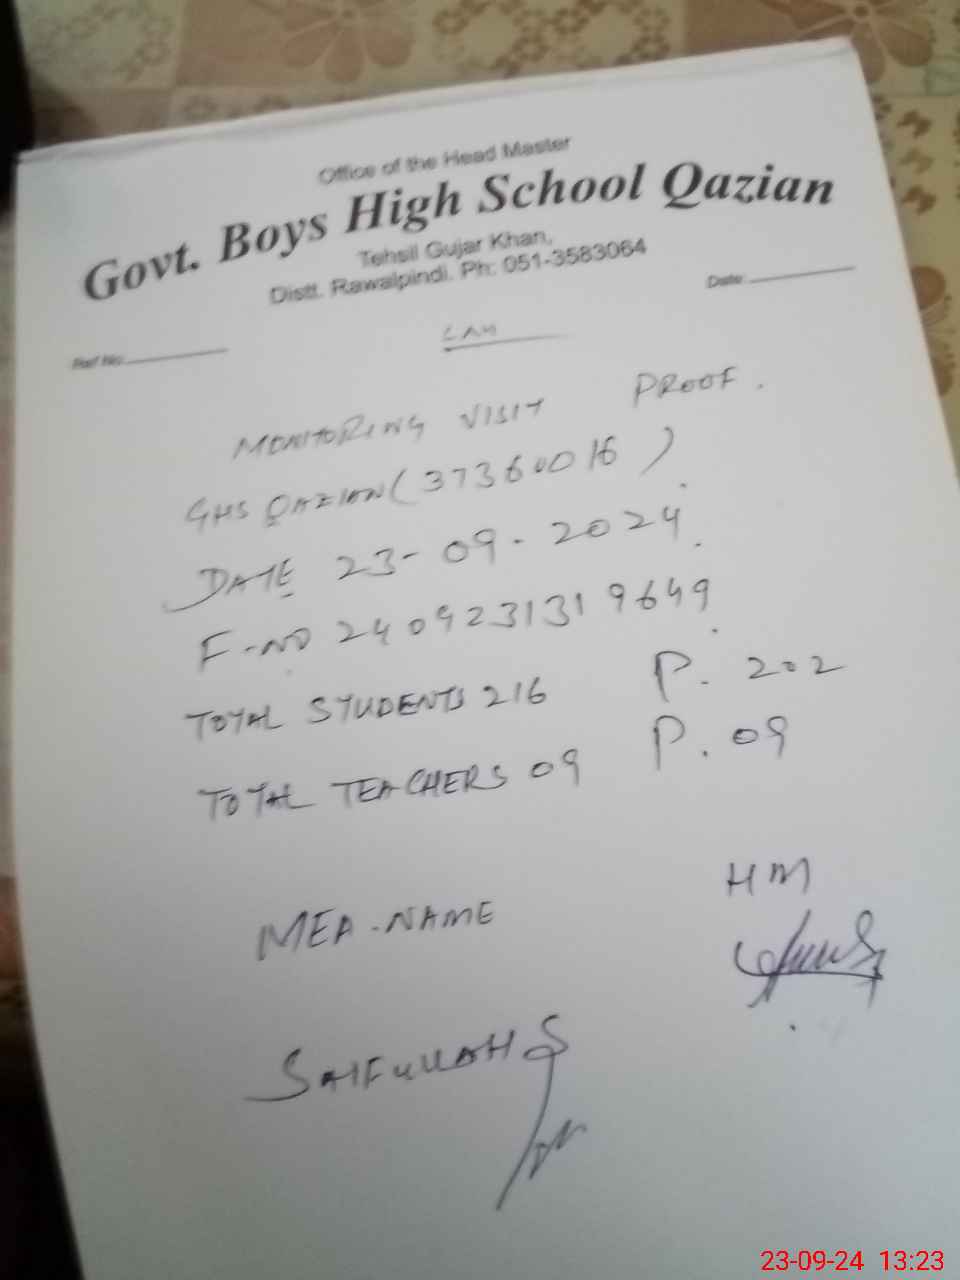 Office of the Head Master
Govt. Boys High School Qazian
Tehsil Gujar Khan,
Distt. Rawalpindi. Ph: 051-3583064
Ref No.
Date:
MONITORING VISIT PROOF.
GHS QAZIAN (37360016)
DATE 23-09-2024.
F-NO 2409231319649.
TOTAL STUDENTS 216 P. 202
TOTAL TEACHERS 09 P. 09
HM
MEA-NAME
SAIFULLAH
23-09-24 13:23